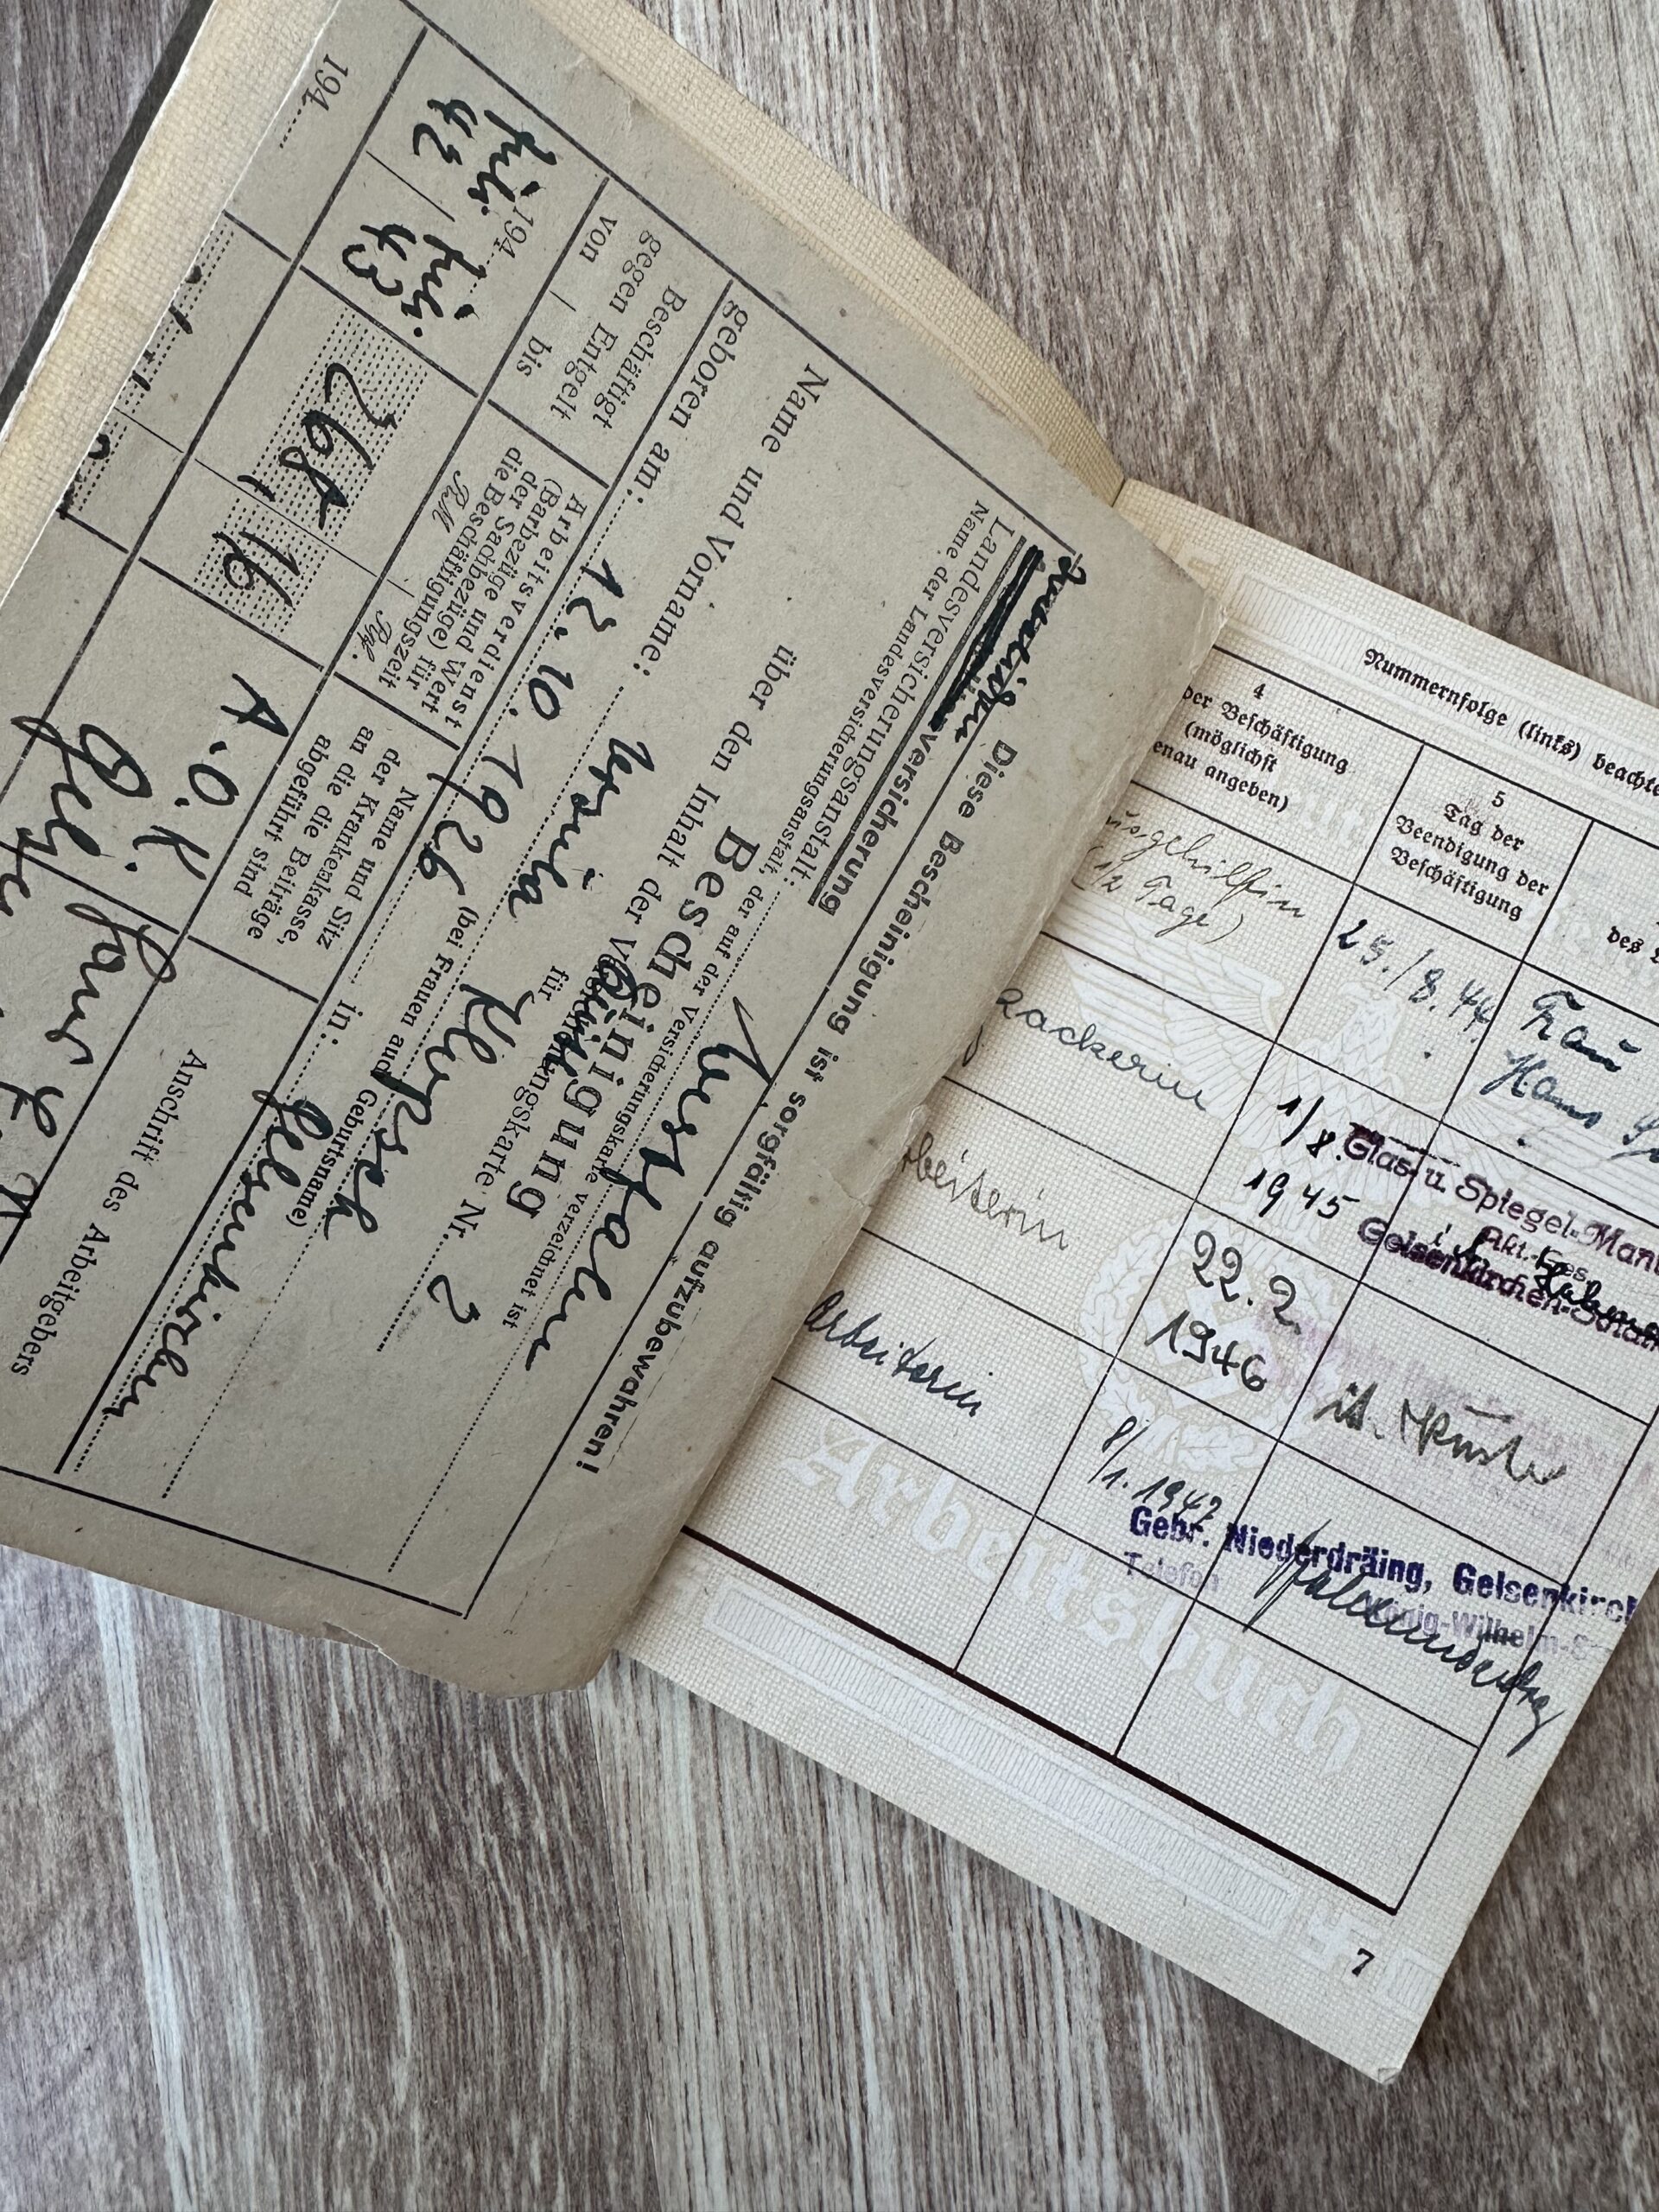 Diese Bescheinigung ist sorgfältig aufzubewahren!
Invaliden versicherung
Landesversicherungsanstalt: Westfalen
Name der Landesversicherungsanstalt, der auf der Versicherungskarte verzeichnet ist
Bescheinigung
über den Inhalt der
für Versicherungskarte Nr. 2
Name und Vorname: Ursula Klupsch
(bei Frauen auch Geburtsname)
geboren am: 12. 10. 1926 in: Gelsenkirchen
Beschäftigt
gegen Entgelt
von | bis
Arbeitsverdienst
(Barbezüge und Wert
der Sachbezüge) für
die Beschäftigungszeit
RM Rpf.
Name und Sitz
der Krankenkasse,
an die die Beiträge
abgeführt sind
Anschrift des Arbeitgebers
194
42 43
268, 16
A.O.K.
Hans
194
Nummernfolge (links) beachte
4
der Beschäftigung
(möglichst
enau angeben)
5
Tag der
Beendigung der
Beschäftigung
des
usgehilfin
(1/2 Tage)
25./8.44.
Frau
Hans
Packerin
1/8.
1945
Glas- u. Spiegel-Manu
Akt.-Ges.
Gelsenkirchen-Schalk
beiterin
22.2.
1946
Arbeiterin
8/1.1947
Gebr. Niederdräing, Gelsenkirch
Telefon
König-Wilhelm-S
Arbeitsbuch
7